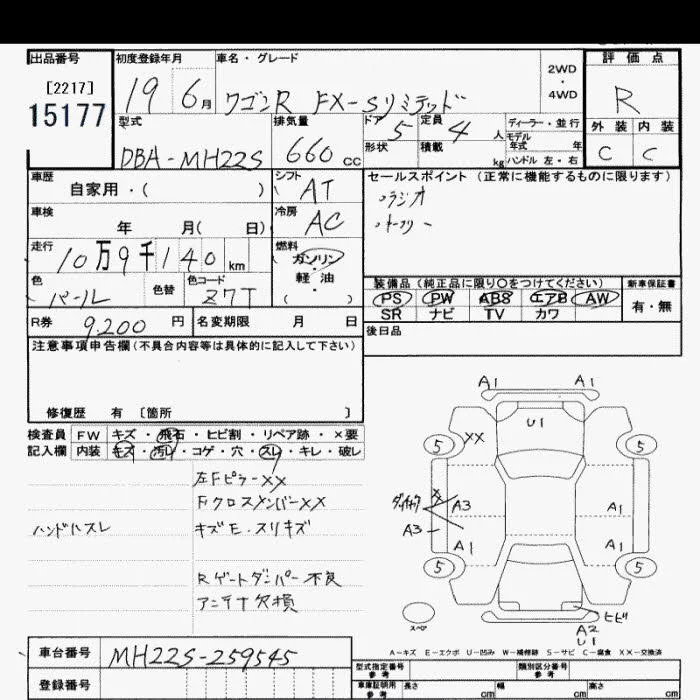 出品番号
[2217]
15177
初度登録年月
19 6月
車名・グレード
ワゴンR FX-Sリミテッド
2WD
・
4WD
評価点
R
外装 内装
C C
型式
DBA-MH22S
排気量
660 cc
ドア 5
定員 4 人
形状
積載 kg
ディーラー・並行
モデル
年式 年
ハンドル 左・右
車歴
自家用・( )
シフト
AT
セールスポイント (正常に機能するものに限ります)
・ラジオ
・キーフリー
車検
年 月( 日)
冷房
AC
走行
10万9千140 km
燃料
ガソリン
・
軽油
・
( )
色
パール
色替
色コード
Z7T
装備品 (純正品に限り○をつけてください)
PS PW ABS エアB AW
SR ナビ TV カワ
新車保証書
有・無
R券 9.200 円
名変期限 月 日
後日品
注意事項申告欄 (不具合内容等は具体的に記入して下さい)
修復歴 有 〔箇所 〕
検査員
記入欄
FW キズ・飛石・ヒビ割・リペア跡・×要
内装 キズ・汚レ・コゲ・穴・スレ・キレ・破レ
左Fピラー××
Fクロスメンバー××
ハンドルスレ
キズE.スリキズ
Rゲートダンパー不良
アンテナ欠損
A1 A1
U1
5 ×× 5
A3 A1
A3
A1 A1
5 5
スペア
ヒビ
A2
U1
A-キズ E-エクボ U-凹み W-補修跡 S-サビ C-腐食 XX-交換済
車台番号
MH22S-259545
登録番号
型式指定番号
参考
類別区分番号
参考
車庫証明用
参考
長さ cm
幅 cm
高さ cm